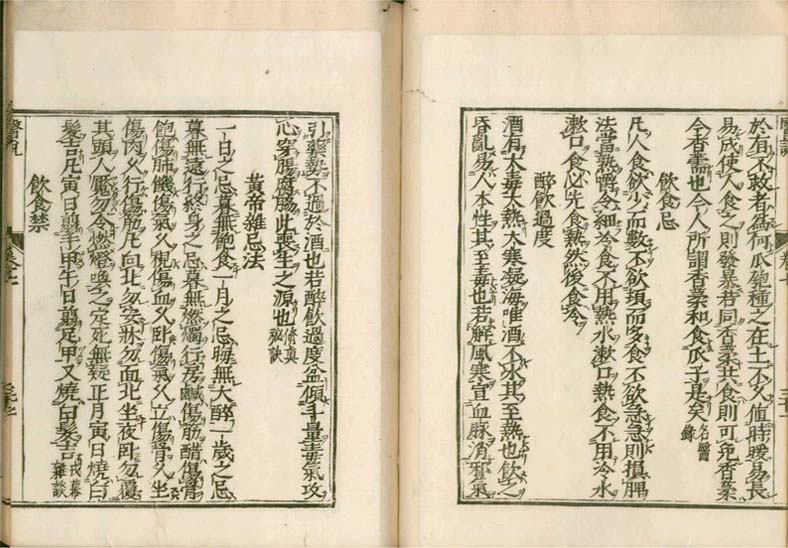 醫説
卷七
於有不救者為何瓜匏種之在土不久值時暖易長
易成使人食之則發暴若同香菜共食則可免香菜
今香薷也今人所謂香菜和食瓜子是矣名醫錄
飲食忌
凡人食欲少而數不欲頓而多食不欲急急則損脾
法當熟嚼令細冷食不用熱水漱口熱食不用冷水
漱口食必先食熱然後食冷
醉飲過度
酒有大毒大熱大寒凝海唯酒不氷其至熱也飲之
昏亂易人本性其至毒也若解風寒宣血脉消邪氣
引藥勢不過於酒也若醉飲過度盆傾斗量毒氣攻
心穿腸腐脇此喪生之源也脩真秘訣
黃帝雜忌法
一日之忌暮無飽食一月之忌晦無大醉一歲之忌
暮無遠行終身之忌暮無燃燭行房鹹傷筋醋傷骨
飽傷肺饑傷氣久視傷血久卧傷氣久立傷骨久坐
傷肉久行傷筋凡向北勿安牀勿面北坐夜卧勿覆
其頭人魘勿令燃燈喚之定死無疑正月寅日燒白
髮吉凡寅日剪手甲午日剪足甲又燒白髮吉戎幕雜談
飲食禁